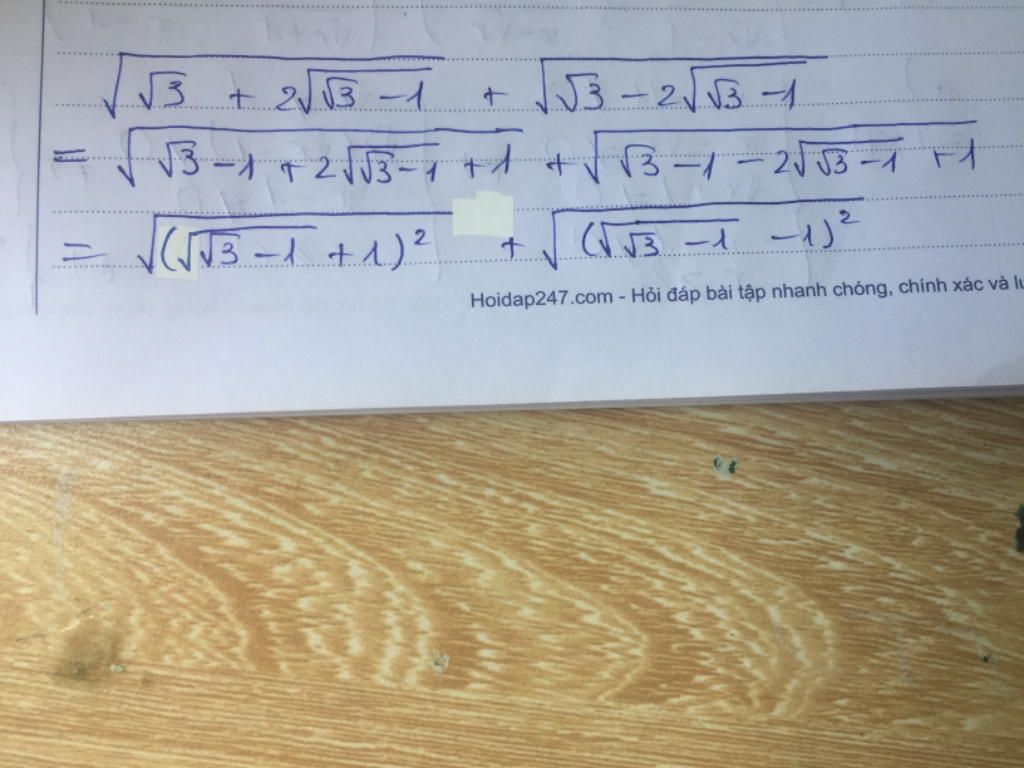 √(√3 + 2√(√3 - 1)) + √(√3 - 2√(√3 - 1))
= √(√3 - 1 + 2√(√3 - 1) + 1) + √(√3 - 1 - 2√(√3 - 1) + 1)
= √((√(√3 - 1) + 1)²) + √((√(√3 - 1) - 1)²)
Hoidap247.com - Hỏi đáp bài tập nhanh chóng, chính xác và